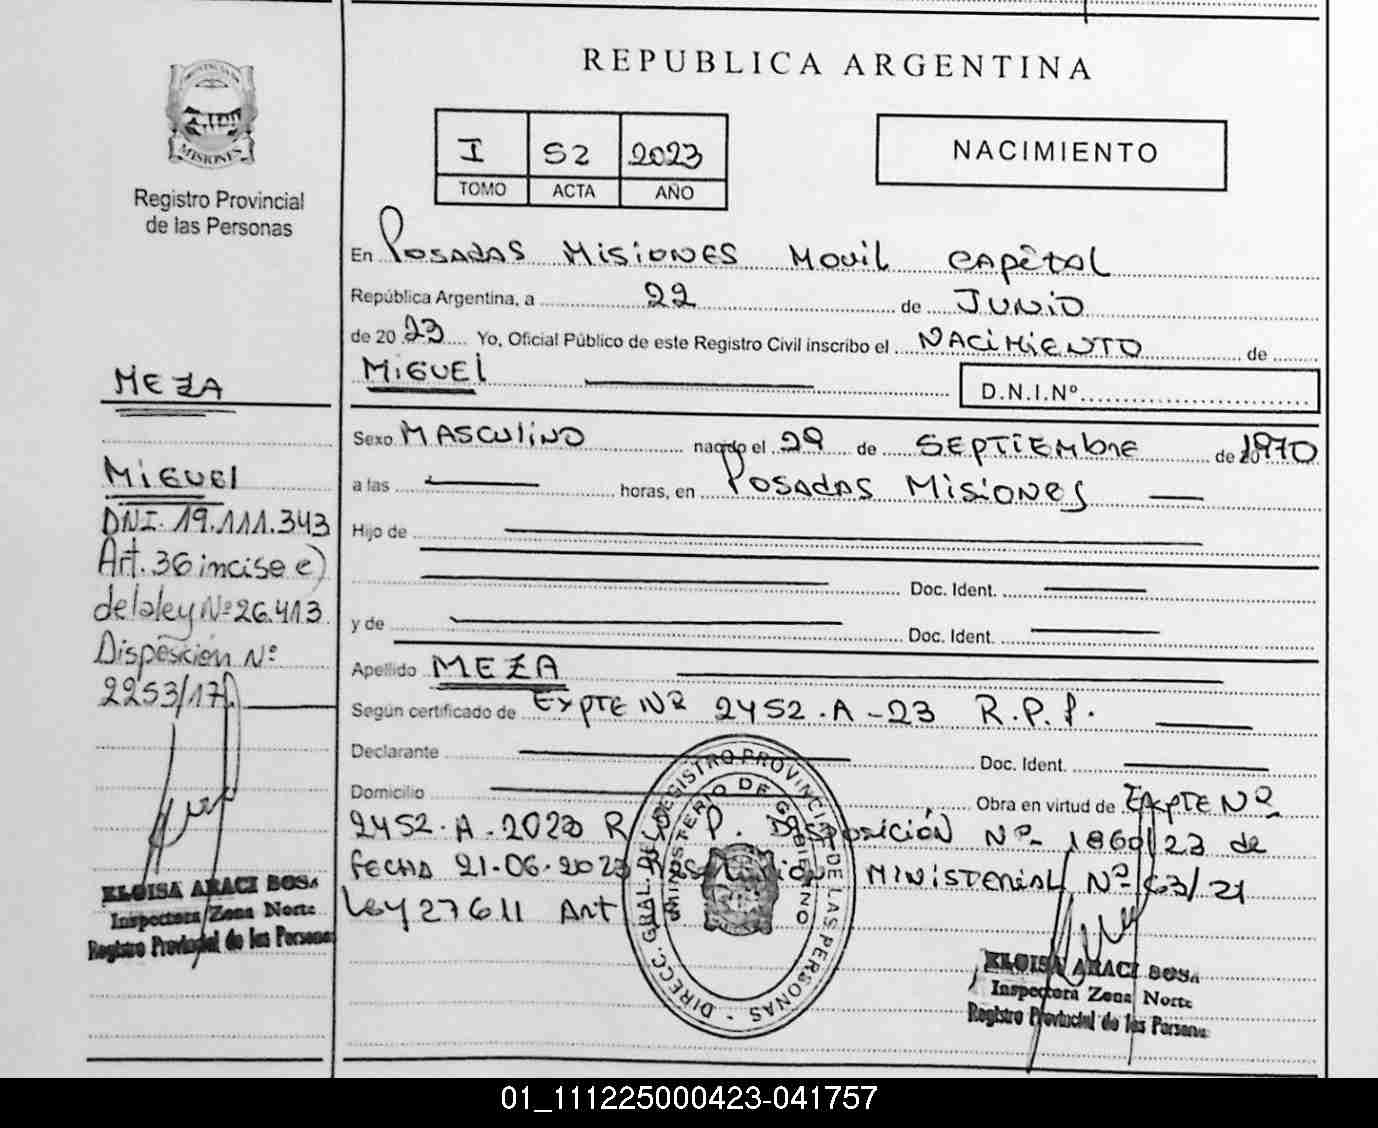 REPUBLICA ARGENTINA
PROVINCIA DE
MISIONES
Registro Provincial
de las Personas
I S2 2023
TOMO ACTA AÑO
NACIMIENTO
En Posadas Misiones Movil Capital
República Argentina, a 22 de JUNIO
de 20 23 Yo, Oficial Público de este Registro Civil inscribo el NACIMIENTO de
MIGUEL D.N.I.Nº
Sexo MASCULINO nacido el 29 de SEPTIEMbRE de 1970
a las horas, en Posadas Misiones
Hijo de
Doc. Ident.
y de
Doc. Ident.
Apellido MEZA
Según certificado de Expte Nº 2452.A-23 R.P.P.
Declarante Doc. Ident.
Domicilio Obra en virtud de Expte Nº
2452.A.2023 R. P. P. Disposición Nº- 1860/23 de
FECHA 21-06-2023 Resolución MINISTERIAL Nº 63/21
Ley 27611 Art
MEZA
MIGUEL
DNI. 19.111.343
Art. 36 incise e)
de la ley Nº 26.413
Disposición Nº
2253/17
ELOISA ARACI BOSA
Inspectora Zona Norte
Registro Provincial de las Personas
DIRECC. GRAL. DEL REGISTRO PROVINCIAL DE LAS PERSONAS -
MINISTERIO DE GOBIERNO
ELOISA ARACI BOSA
Inspectora Zona Norte
Registro Provincial de las Personas
01_111225000423-041757